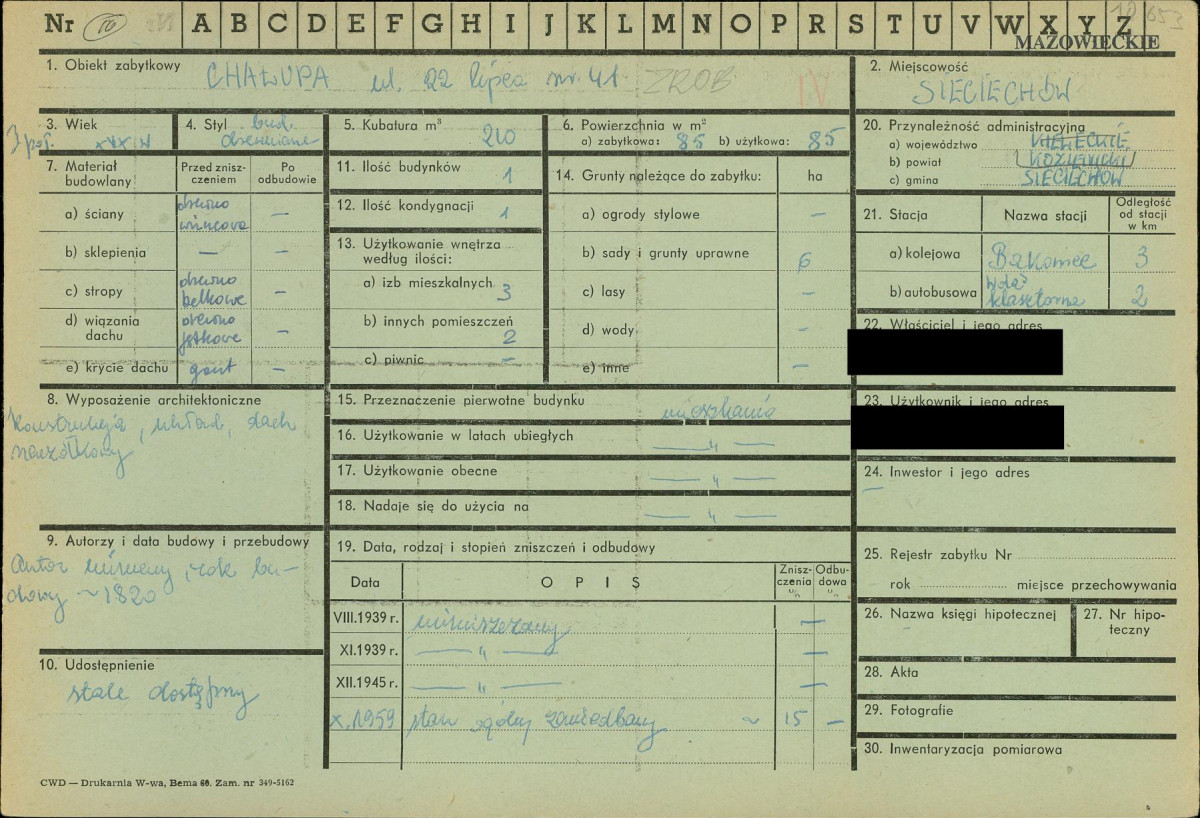 Nr 10 A B C D E F G H I J K L M N O P R S T U V W X Y Z
MAZOWIECKIE
1. Obiekt zabytkowy CHAŁUPA ul. 22 lipca nr. 41 ZROB IV
2. Miejscowość
SIECIECHÓW
3. Wiek
4. Styl bud.
drewniane
5. Kubatura m³ 210
6. Powierzchnia w m²
a) zabytkowa: 85 b) użytkowa: 85
20. Przynależność administracyjna
a) województwo KIELECKIE
b) powiat KOZIENICKI
c) gmina SIECIECHÓW
7. Materiał budowlany
Przed znisz-
czeniem
Po
odbudowie
a) ściany drewno
wieńcowa —
b) sklepienia — —
c) stropy drewno
belkowe —
d) wiązania
dachu drewno
jętkowe —
e) krycie dachu gont —
11. Ilość budynków 1
12. Ilość kondygnacji 1
13. Użytkowanie wnętrza
według ilości:
a) izb mieszkalnych 3
b) innych pomieszczeń 2
c) piwnic —
14. Grunty należące do zabytku: ha
a) ogrody stylowe —
b) sady i grunty uprawne 6
c) lasy —
d) wody —
e) inne —
21. Stacja
Nazwa stacji
Odległość
od stacji
w km
a) kolejowa Bąkowiec 3
b) autobusowa
klasztorna 2
22. Właściciel i jego adres
23. Użytkownik i jego adres
24. Inwestor i jego adres
—
8. Wyposażenie architektoniczne
Konstrukcja, układ, dach
naczółkowy
15. Przeznaczenie pierwotne budynku mieszkanie
16. Użytkowanie w latach ubiegłych — „ —
17. Użytkowanie obecne — „ —
18. Nadaje się do użycia na — „ —
9. Autorzy i data budowy i przebudowy
Autor nieznany, rok bu-
dowy ~1820
10. Udostępnienie
stale dostępny
19. Data, rodzaj i stopień zniszczeń i odbudowy
Data
OPIS
Znisz-
czenia
%
Odbu-
dowa
%
VIII.1939 r. niezniszczony —
XI.1939 r. — „ — —
XII.1945 r. — „ — —
X.1959 stan ogólny zaniedbany ~ 15 —
25. Rejestr zabytku Nr
rok miejsce przechowywania
26. Nazwa księgi hipotecznej
27. Nr hipo-
teczny
28. Akta
29. Fotografie
30. Inwentaryzacja pomiarowa
CWD — Drukarnia W-wa, Bema 60. Zam. nr 349-5162